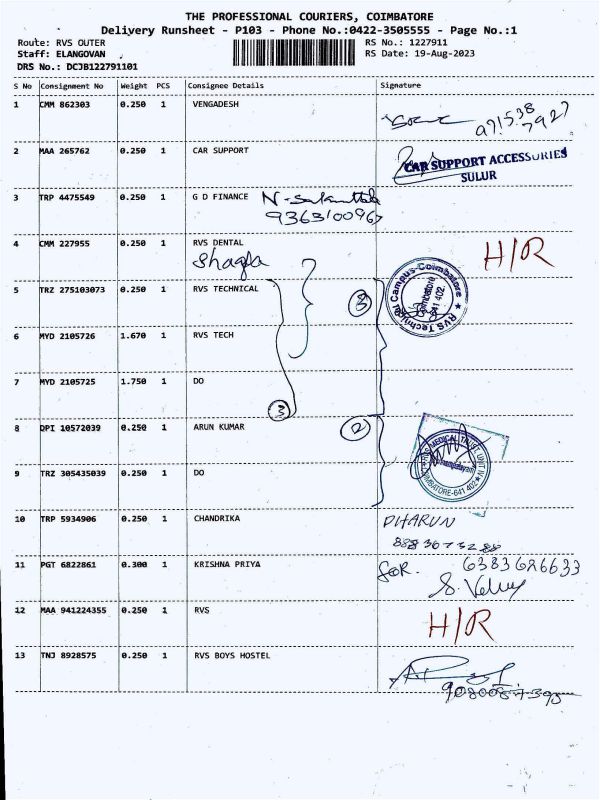 THE PROFESSIONAL COURIERS, COIMBATORE
Delivery Runsheet - P103 - Phone No.:0422-3505555 - Page No.:1
Route: RVS OUTER RS No.: 1227911
Staff: ELANGOVAN RS Date: 19-Aug-2023
DRS No.: DCJB122791101
S No Consignment No Weight PCS Consignee Details Signature
1 CMM 862303 0.250 1 VENGADESH
971538
7927
2 MAA 265762 0.250 1 CAR SUPPORT
CAR SUPPORT ACCESSORIES
SULUR
3 TRP 4475549 0.250 1 G D FINANCE
9363100967
4 CMM 227955 0.250 1 RVS DENTAL H/R
5 TRZ 275103073 0.250 1 RVS TECHNICAL 3
RVS Technical Campus-Coimbatore
Coimbatore
641 402.
6 MYD 2105726 1.670 1 RVS TECH
7 MYD 2105725 1.750 1 DO
3
8 DPI 10572039 0.250 1 ARUN KUMAR 2
9 TRZ 305435039 0.250 1 DO
10 TRP 5934906 0.250 1 CHANDRIKA DHARUN
11 PGT 6822861 0.300 1 KRISHNA PRIYA for. 6383626633
12 MAA 941224355 0.250 1 RVS H/R
13 TNJ 8928575 0.250 1 RVS BOYS HOSTEL